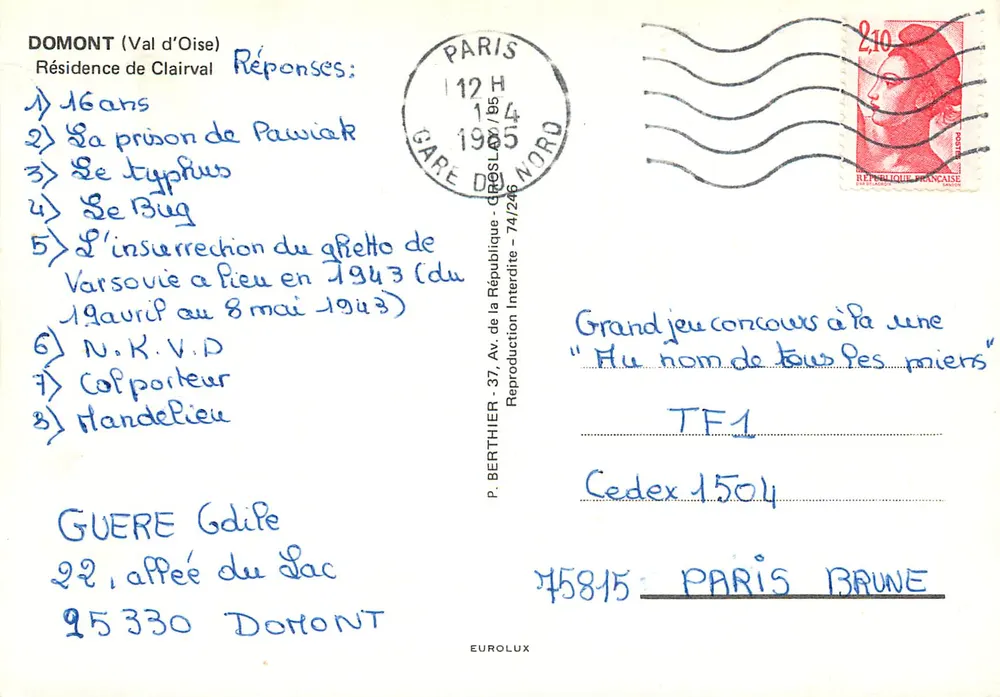 DOMONT (Val d'Oise)
Résidence de Clairval
Réponses:
1) 16 ans
2) La prison de Pawiak
3) Le typhus
4) Le Bug
5) L'insurrection du ghetto de
Varsovie a lieu en 1943 (du
19 avril au 8 mai 1943)
6) N.K.V.D
7) Colporteur
8) Mandelieu
GUERE Odile
22, allée du Lac
95330 DOMONT
P. BERTHIER - 37, Av. de la République - GROSLAY/95
Reproduction Interdite - 74/246
EUROLUX
PARIS
12 H
1-4
1985
GARE DU NORD
2,10
POSTES
RÉPUBLIQUE FRANÇAISE
Grand jeu concours à la une
"Au nom de tous les miens"
TF1
Cedex 1504
75815 PARIS BRUNE